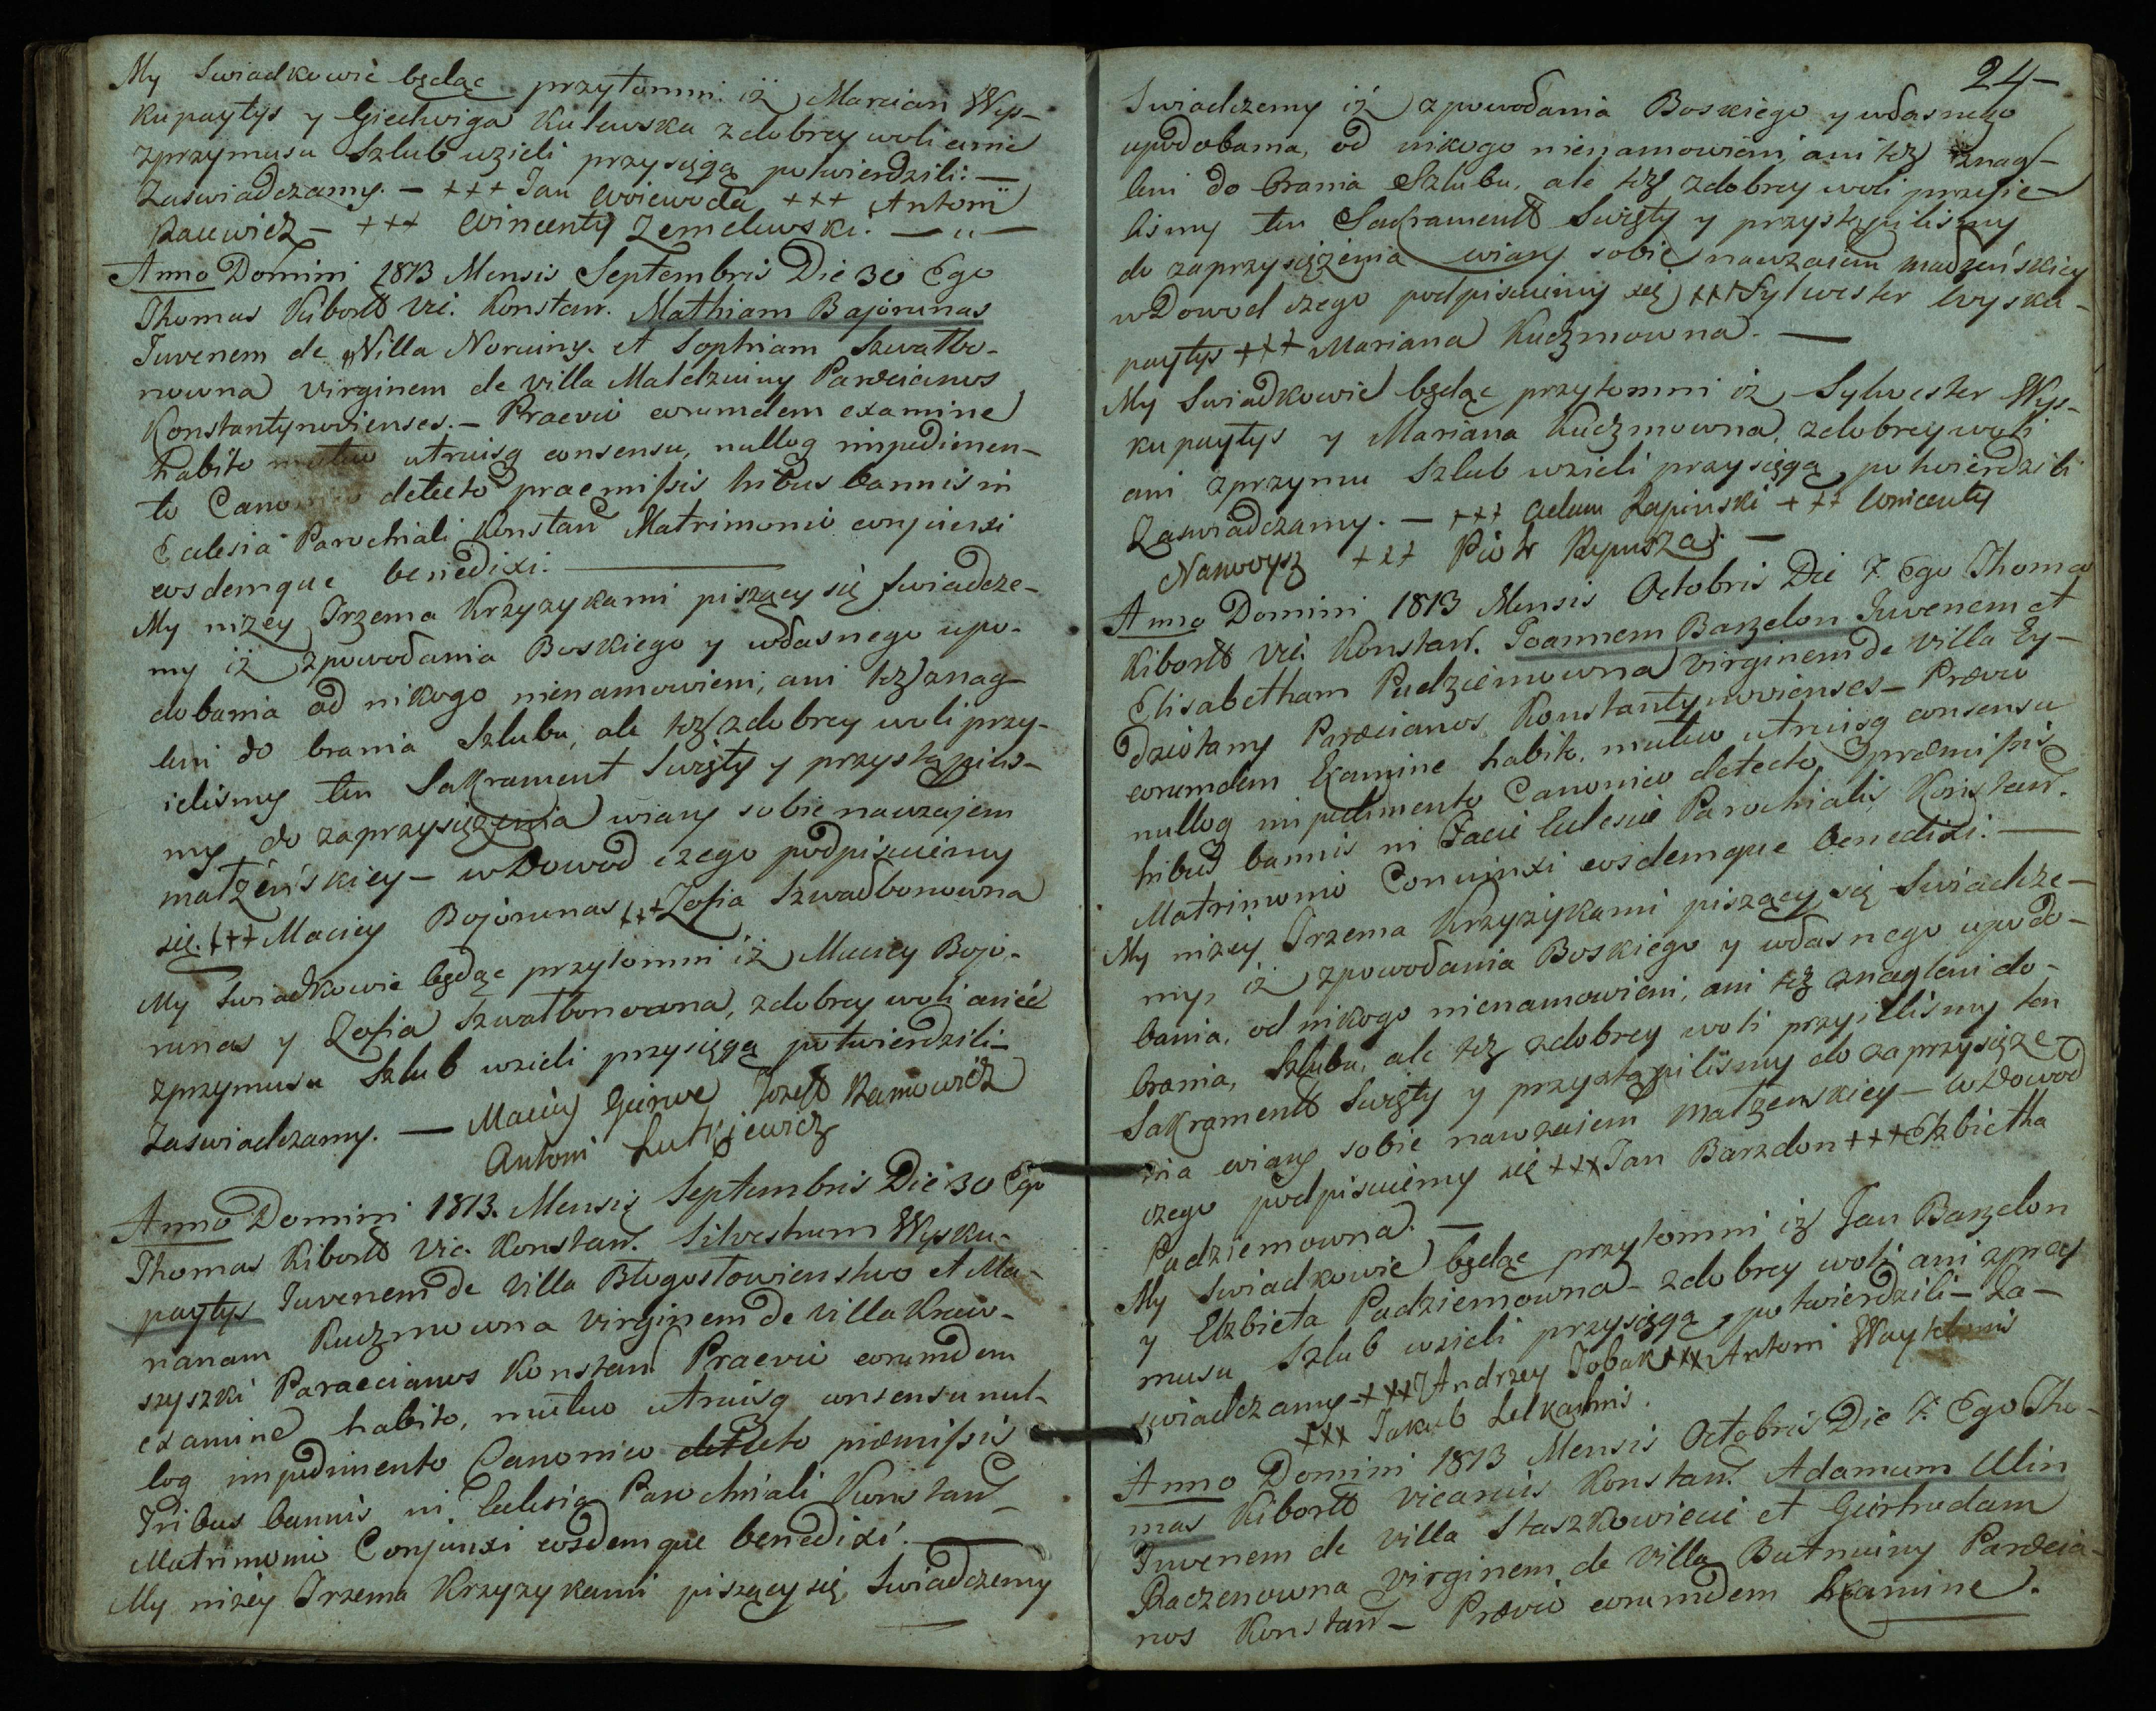 My Swiadkowie będąc przytomni iż Marcian Wys-
kupaytys y Giedwiga Kulewska zdobrey woli anie
zprzymusu Szlub uzieli przysięgą potwierdzili. —
Zaswiadczamy. — +++ Jan Woiewoda +++ Antoni
Racewicz — +++ Wincenty Zemelewski. — „ —
Anno Domini 1813 Mensis Septembris Die 30 Ego
Thomas Kibortt Vic. Konstan. Mathiam Bajorunas
Juvenem de Villa Noruiny. et Sophiam Szwatbo-
nowna virginem de villa Maldzuiny Paroecianos
Konstantynovienses. — Praevio eorumdem examine
habito mutuo utriusq consensu, nulloq impedimen-
to Canonico detecto praemissis tribus bannis in
Eclesia Parochiali Konstan Matrimonio conjunxi
eosdemque benedixi. —
My niżey Trzema Krzyzykami piszący się swiadcze-
my iż zpowodania Boskiego y własnego upo-
dobania od nikogo nienamowieni, ani też znag-
leni do brania Szlubu, ale też zdobrey woli przy-
ieliśmy ten Sakrament Swięty y przystąpiliś-
my do zaprzysiężenia wiary sobie nawzajem
małżeńskiey — wDowod czego podpisuiemy
się. +++ Maciey Bojorunas +++ Zofia Szwadbonowna
My Swiadkowie będąc przytomni iż Maciey Bojo-
runas y Zofia Szwatbonowna, zdobrey woli anie
zprzymusu Szlub wzieli przysięgą potwierdzili —
Zaswiadczamy. — Maciey Gierwe Jozeff Ramowicz
Antoni Lutkjewicz
Anno Domini 1813. Mensis Septembris Die 30 Ego
Thomas Kibortt Vic. Konstan. Silvestrum Wysku-
paytys Juvenem de Villa Błogosłowienstwo et Ma-
rianam Kuczmowna Virginem de Villa Kraw-
szyszki Paraecianos Konstan Praevio eorumdem
examine habito, mutuo utriusq consensu nul-
loq impedimento Canonico detecto praemissis
Tribus bannis in Eclesia Parochiali Konstan —
Matrimonio Conjunxi eosdemque benedixi. —
My niżey Trzema Krzyzykami piszący się, Swiadczemy
24 —
Swiadczemy iż zpowodania Boskiego y własnego
upodobania, od nikogo nienamowieni ani też znag-
leni do brania Szlubu, ale też zdobrey woli przyie-
lismy ten Sakramentt Swięty y przystąpilismy
do zaprzysiężenia wiary sobie nawzaiem madżeńskiey
wDowod czego podpisuiemy się +++ Sylwester Wysku-
paytys +++ Mariana Kuczmowna. —
My Swiadkowie będąc przytomni iż Sylwester Wys-
kupaytys y Mariana Kuczmowna, zdobrey woli
ani zprzymu Szlub wzieli przysięgą potwierdzili
Zaswiadczamy. — +++ Adam Łapinski +++ Wincenty
+++ Piotr —
Anno Domini 1813 Mensis Octobris Die 7. Ego Thomas
Kibortt Vic. Konstan. Joannem Barzdon Juvenem et
Elisabetham Padziemowna virginem de villa Ey-
dziotany Paroecianos Konstantynovienses — Praevio
eorumdem Examine habito, mutuo utriusq consensu
nulloq impedimento Canonico detecto, praemissis
tribus bannis in Facie Eclesiae Parochialis Konstan.
Matrimonio Coniunxi eosdemque benedixi. —
My niżey Trzema Krzyzykami piszący się Swiadcze-
my, iż zpowodania Boskiego y własnego upodo-
bania, od nikogo nienamowieni, ani też znagleni do-
brania, Szlubu, ale też zdobrey woli przyieliśmy ten
Sakramentt Swięty y przystąpiliśmy do zaprzysięże-
nia wiary sobie nawzaiem małżenskiey — wDowod
czego podpisuiemy się +++ Jan Barzdon +++ Elzbietha
Padziemowna. —
My Swiadkowie będąc przytomni iż Jan Barzdon
y Elzbieta Padziemowna — zdobrey woli ani zprzy
musu Szlub wzieli przysięgą, potwierdzili — Za-
swiadczamy — +++ Andrzey Tobak +++ Antoni
+++ Jakub
Anno Domini 1813 Mensis Octobris Die 7. Ego Tho-
mas Kibortt vicariis Konstan. Adamum Ulin
Juvenem de villa Staszkowicie et Giertrudam
Raczenowna virginem de Villa Butruiny Paroecia-
nos Konstan — Praevio eorumdem Examine.